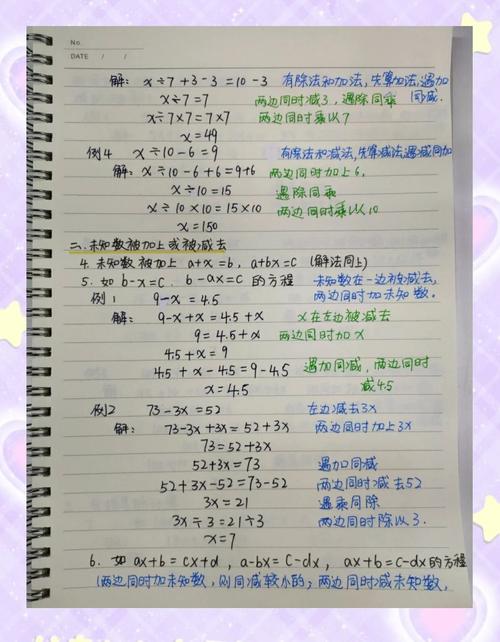 No.
DATE / /
解: x÷7+3-3=10-3 有除法和加法,先算加法,遇加
x÷7=7 两边同时减3,遇除同乘 同减.
x÷7×7=7×7 两边同时乘以7
x=49
例4 x÷10-6=9 有除法和减法,先算减法,遇减同加
解: x÷10-6+6=9+6 两边同时加上6.
x÷10=15 遇除同乘
x÷10×10=15×10 两边同时乘以10
x=150
二.未知数被加上或被减去
4.未知数被加上 a+x=b, a+bx=c (解法同上)
5.如 b-x=c. b-ax=c 的方程 未知数在一边被减去,
例1 9-x=4.5 两边同时加未知数。
解: 9-x+x=4.5+x x在左边被减去
9=4.5+x 两边同时加x
4.5+x=9
4.5+x-4.5=9-4.5 遇加同减,两边同时
x=4.5 减4.5
例2 73-3x=52 左边减去3x
解: 73-3x+3x=52+3x 两边同时加上3x
73=52+3x
52+3x=73 遇加同减
52+3x-52=73-52 两边同时减去52
3x=21 遇乘同除
3x÷3=21÷3 两边同时除以3.
x=7
6.如 ax+b=cx+d, a-bx=c-dx, ax+b=c-dx的方程
(两边同时加未知数,则同减较小的;两边同时减未知数,